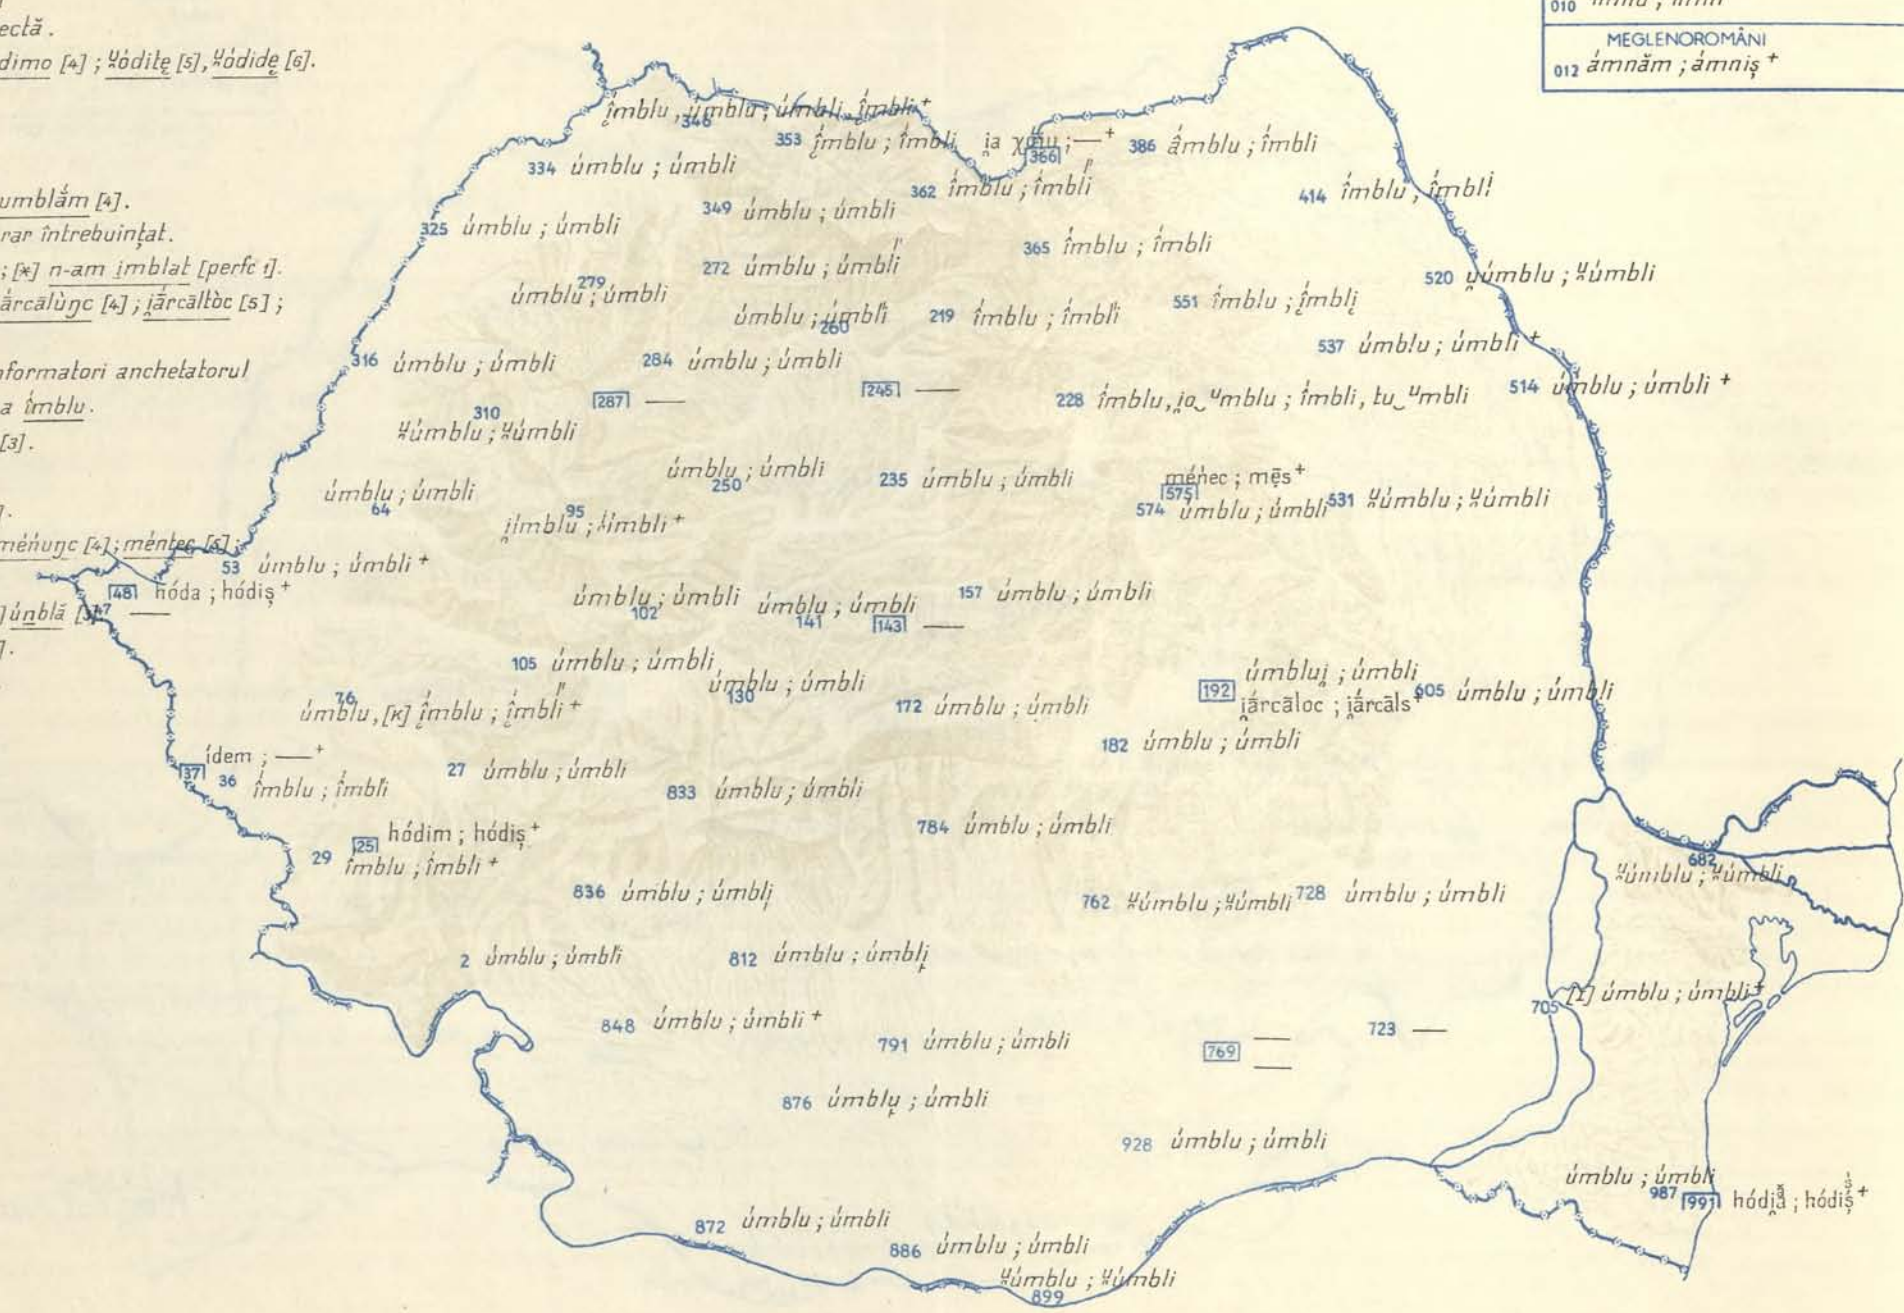 ectă.
dimo [4] ; ᵘ̯óditę [5], ᵘ̯ódidę [6].
umblắm [4].
rar întrebuințat.
; [*] n-am imblat [perfc 1].
ārcălùŋc [4] ; i̯ārcāltòc [5] ;
nformatori anchetatorul
a îmblu.
[3].
].
méṅuŋc [4] ; méntec [5] ;
] únblă [3]
].
010
MEGLENOROMÂNI
012 ámnăm ; ámniș +
î́mblu, úmblu ; úmbli, î́mbli +
346
353 î́mblu ; î́mbli
366 +
386 ấmblu ; î́mbli
334 úmblu ; úmbli
362 î́mblu ; î́mbli
414 î́mblu ; î́mbli
349 úmblu ; úmbli
325 úmblu ; úmbli
365 î́mblu ; î́mbli
272 úmblu ; úmbli
520 u̯úmblu ; ᵘ̯úmbli
279
úmblu ; úmbli
551 î́mblu ; î́mbli
úmblu ; úmbli
260
219 î́mblu ; î́mbli
537 úmblu ; úmbli +
316 úmblu ; úmbli
284 úmblu ; úmbli
287 —
245 —
228 î́mblu, i̯o‿ᵘmblu ; î́mbli, tu‿ᵘmbli
514 úmblu ; úmbli +
310
ᵘ̯úmblu ; ᵘ̯úmbli
úmblu ; úmbli
250
235 úmblu ; úmbli
ménec ; mēs +
575
574 úmblu ; úmbli
531 ᵘ̯úmblu ; ᵘ̯úmbli
úmblu ; úmbli
64
95
i̯ímblu ; ⁱ̯ímbli +
53 úmblu ; úmbli +
48 hóda ; hódiș +
47 —
úmblu ; úmbli
102
úmblu ; úmbli
141
143 —
157 úmblu ; úmbli
105 úmblu ; úmbli
úmblu ; úmbli
130
úmblui̯ ; úmbli
192 i̯ắrcāloc ; i̯ắrcāls +
605 úmblu ; úmbli
76
úmblu, [K] î́mblu ; î́mbli +
172 úmblu ; úmbli
182 úmblu ; úmbli
37 ídem ; — +
36 î́mblu ; î́mbli
27 úmblu ; úmbli
833 úmblu ; úmbli
784 úmblu ; úmbli
25 hódim ; hódiș +
29 î́mblu ; î́mbli +
682
ᵘ̯úmblu ; ᵘ̯úmbli
836 úmblu ; úmbli
762 ᵘ̯úmblu ; ᵘ̯úmbli
728 úmblu ; úmbli
2 úmblu ; úmbli
812 úmblu ; úmbli
705 [I] úmblu ; úmbli +
848 úmblu ; úmbli +
791 úmblu ; úmbli
769 —
—
723 —
876 úmblu ; úmbli
928 úmblu ; úmbli
úmblu ; úmbli
987
991 hódi̯ă ; hódiș +
872 úmblu ; úmbli
886 úmblu ; úmbli
ᵘ̯úmblu ; ᵘ̯úmbli
899